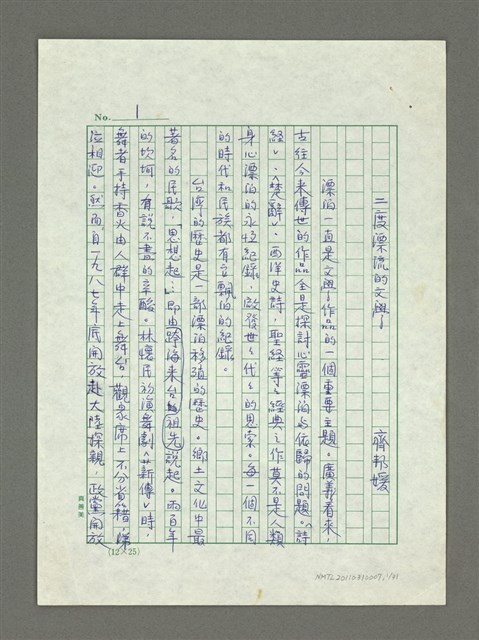 No. 1
二度漂流的文學
齊邦媛
漂泊一直是文學作品的一個重要主題。廣義看來,
古往今來傳世的作品全是探討心靈漂泊与依歸的問題。〈詩
經〉、〈楚辭〉、西洋史詩,聖經等等經典之作莫不是人類
身心漂泊的永恒紀錄,啟發世世代代的思索。每一個不同
的時代和民族都有它飄泊的紀錄。
台灣的歷史是一部漂泊移殖的歷史。鄉土文化中最
著名的民歌,思想起…即由跨海來台的祖先說起。兩百年
的坎坷,有說不盡的辛酸。林懷民的演舞劇〈薪傳〉時,
舞者手持香火由人群中走上舞台,觀眾席上不分省籍,涕
泣相迎。然而,自一九八七年底開放赴大陸探親,政黨開放
(12×25)
NMTL20110310007, 1/31